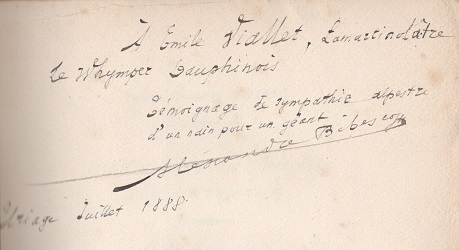 À Emile Viallet, Lamartinolâtre
Le Whymper Dauphinois
Témoignage de sympathie alpestre
d'un nain pour un géant
Alexandre Bibesco
Uriage Juillet 1888.